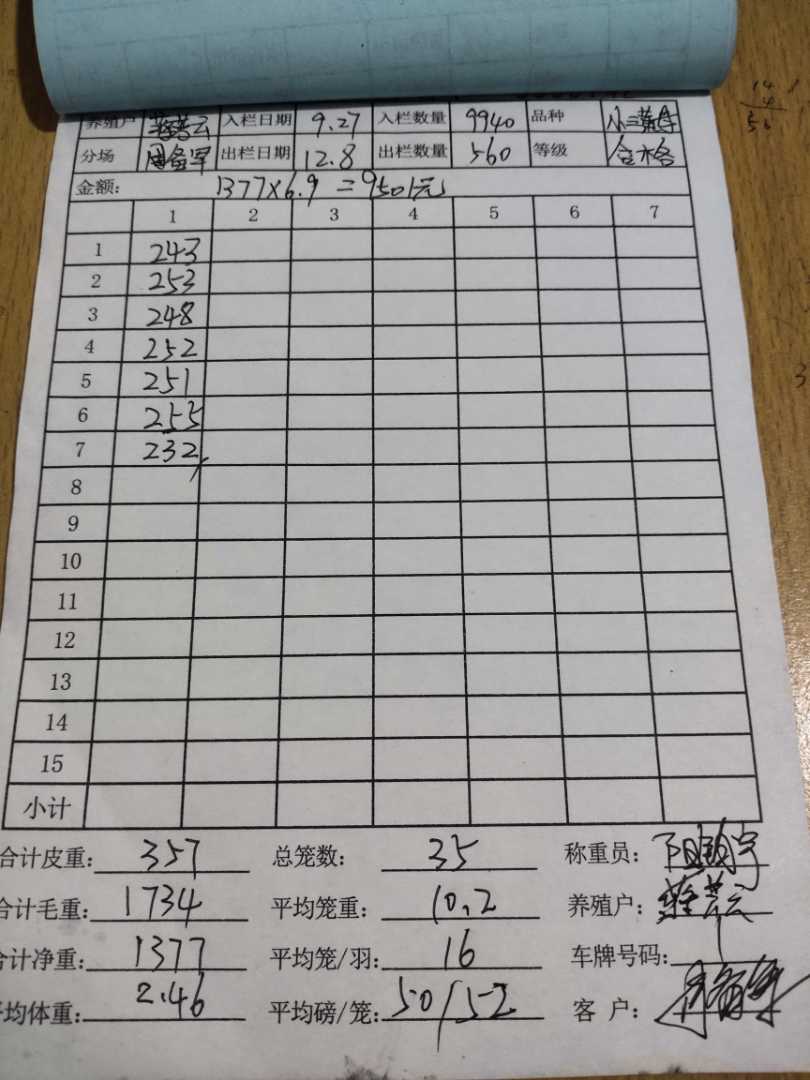 养殖户 入栏日期 9.27 入栏数量 9940 品种
分场 出栏日期 12.8 出栏数量 560 等级 合格
金额: 1377×6.9=9501元
1 2 3 4 5 6 7
1 243
2 253
3 248
4 252
5 251
6 255
7 232
8
9
10
11
12
13
14
15
小计
合计皮重: 357 总笼数: 35 称重员:
合计毛重: 1734 平均笼重: 10.2 养殖户:
合计净重: 1377 平均笼/羽: 16 车牌号码:
平均体重: 2.46 平均磅/笼: 50/52 客户:
14
4
56
3